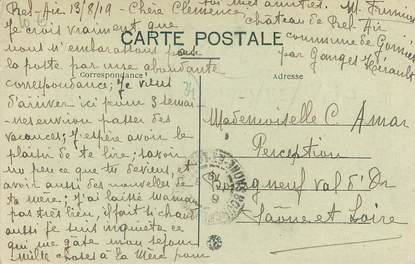 Bel-Air 13/8/19 - Chère Clémence
Je crois vraiment que
nous n'embarattons pas
la poste par une abondante
correspondance; Je viens
d'arriver ici pour 3 semai-
nes environ passer des
vacances; J'espère avoir le
plaisir de te lire; savoir
un peu ce que tu deviens, et
avoir aussi des nouvelles de
ta mère; J'ai laissé maman
pas très bien, il fait si chaud
aussi je suis inquiète ce
qui me gâte mon séjour
Mille choses à ta Mère pour
toi mes amitiés. M. Furnier
château de Bel-Air
commune de Gornies
par Ganges Hérault
CARTE POSTALE
Correspondance
Adresse
Mademoiselle C. Amar
Perception
Bourgneuf val d'Or
Saône et Loire